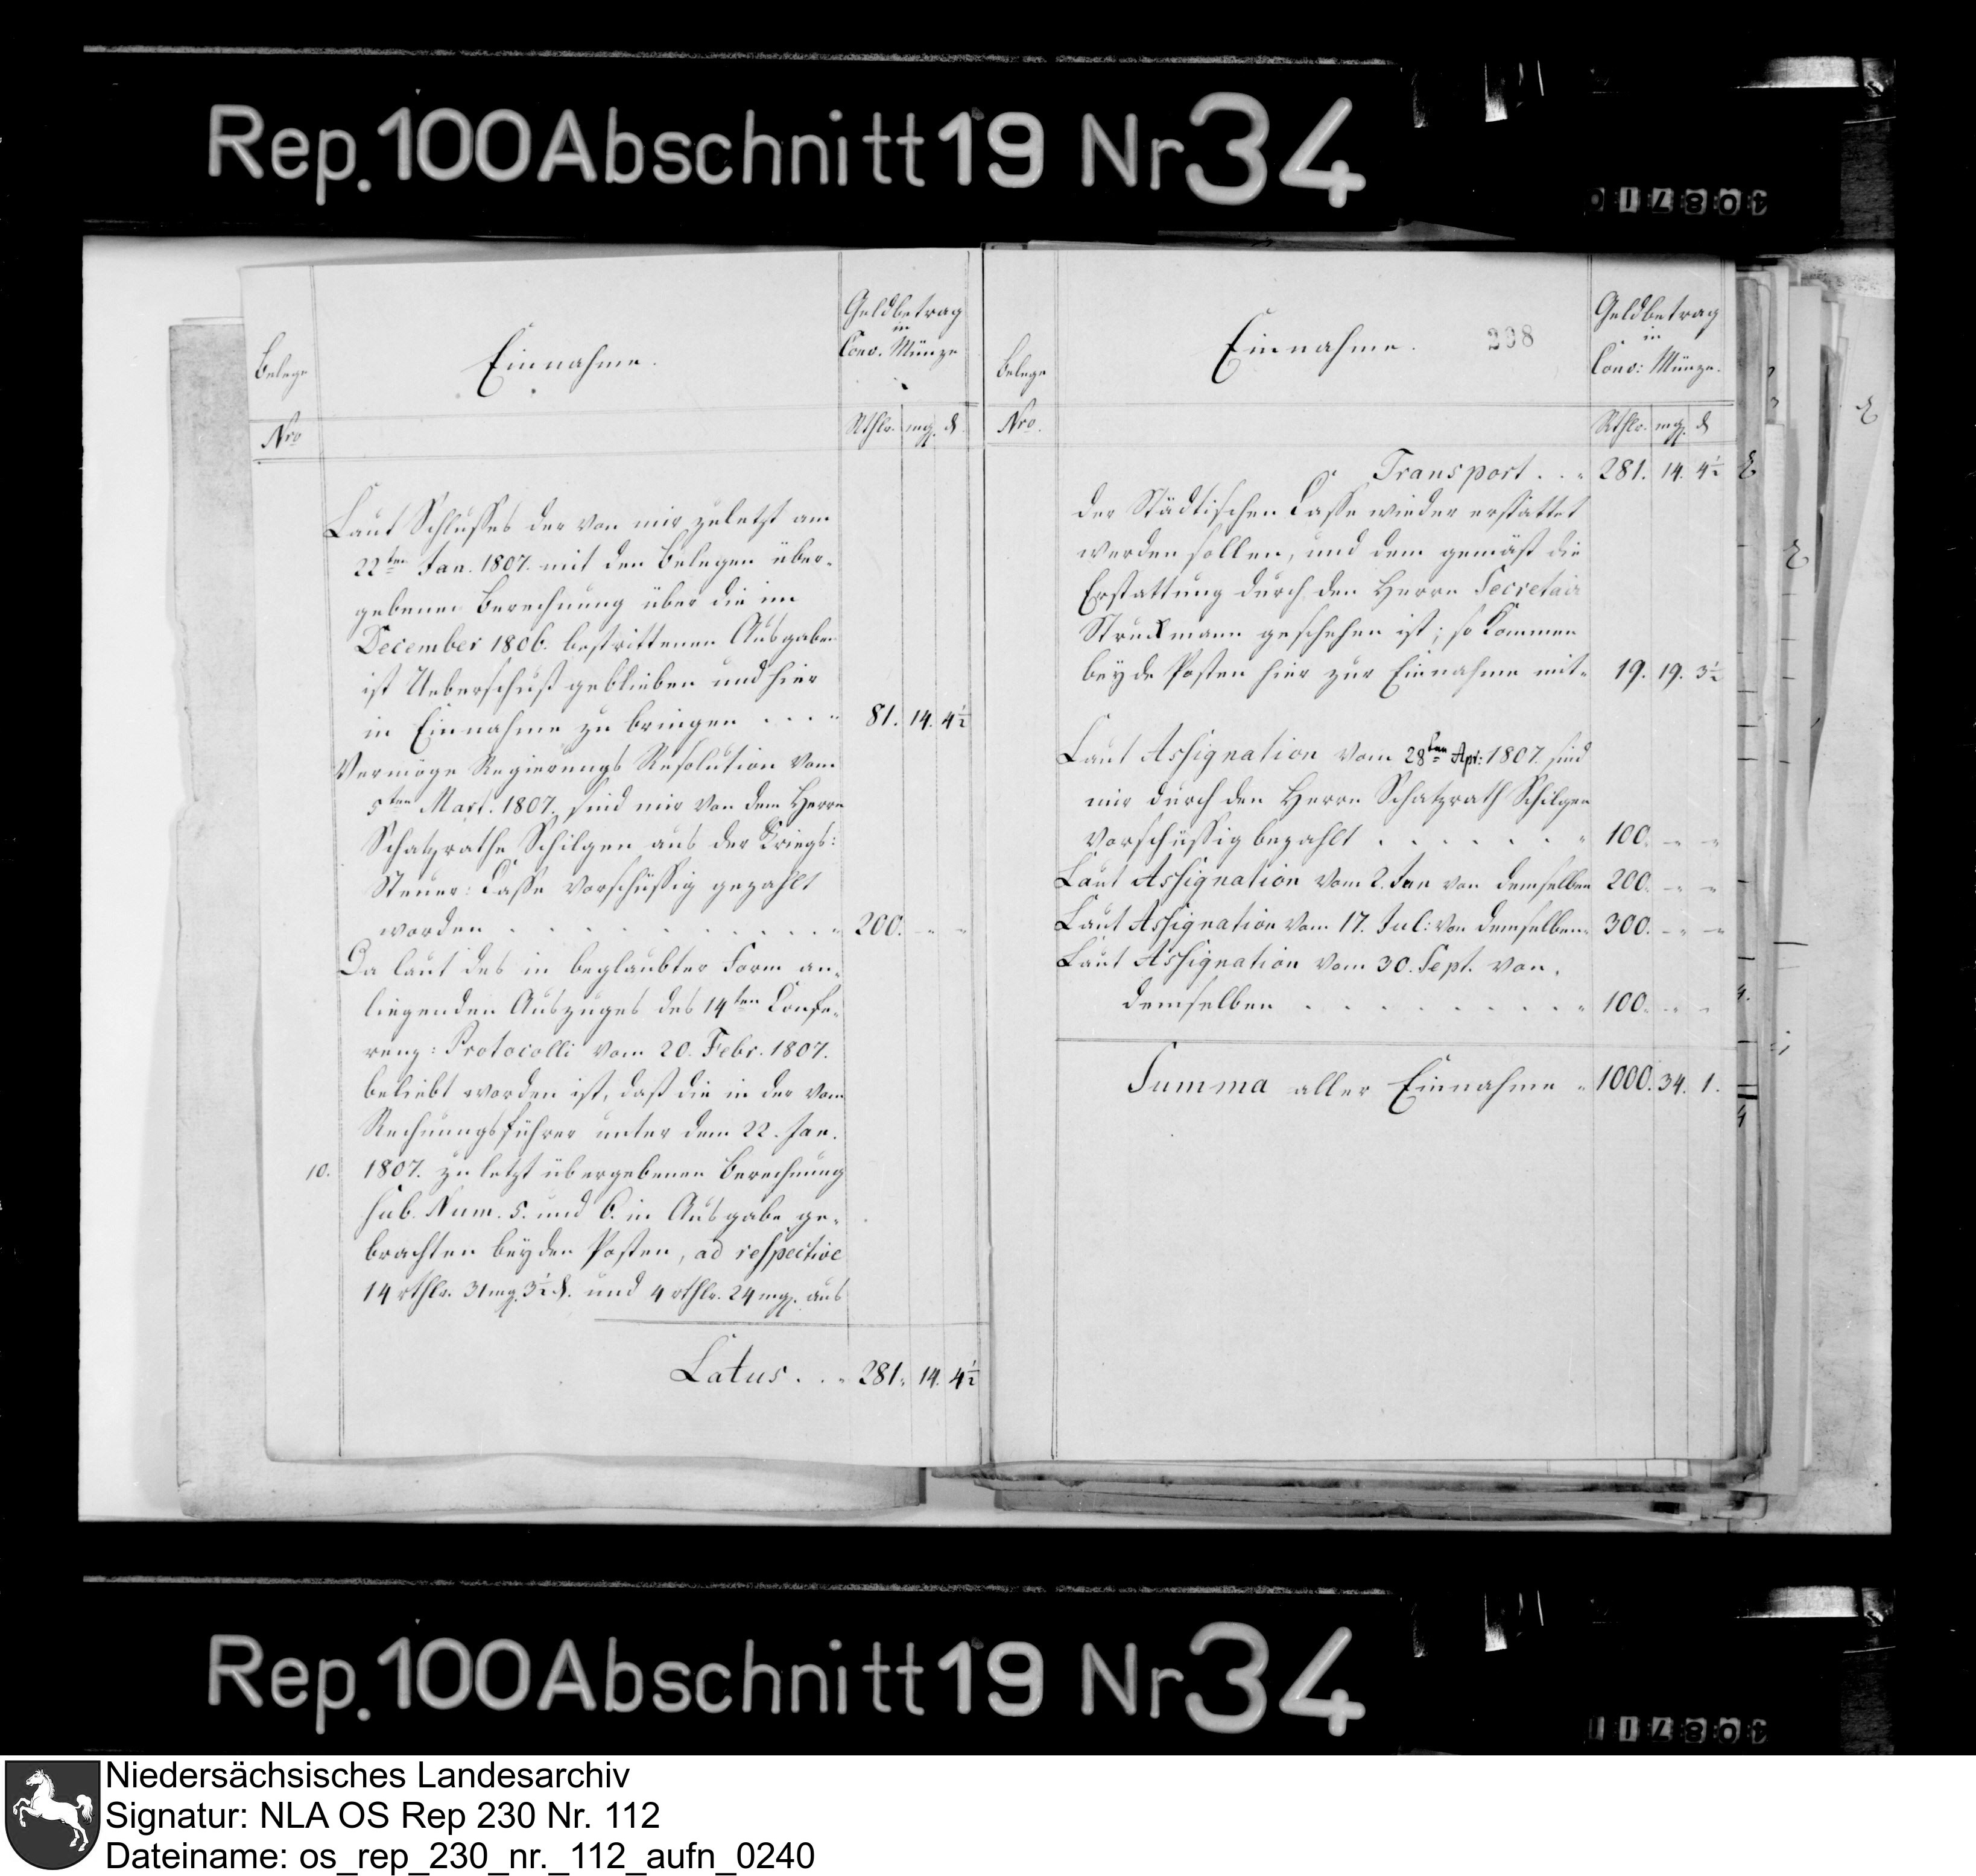 Rep. 100 Abschnitt 19 Nr 34
Belege
Nro
Einnahme.
Geldbetrag
in
Conv. Münze
Rthlr. mgz. ₰
Laut Schlusses der von mir zuletzt am
22ten Jan. 1807. mit den Belegen über-
gebenen Berechnung über die im
December 1806. bestrittenen Ausgaben
ist Ueberschuß geblieben und hier
in Einnahme zu bringen . . . " 81. 14. 4½
Vermöge Regierungs Resolution vom
5ten Mart. 1807. sind mir von dem Herrn
Schatzrathe Schilgen aus der Kriegs:
Steuer: Casse vorschüssig gezahlt
worden . . . . . . . . . " 200. - " - "
Da laut des in beglaubter Form an-
liegenden Auszuges des 14ten Confe-
renz: Protocolli vom 20. Febr. 1807.
beliebt worden ist, daß die in der vom
Rechnungsführer unter dem 22. Jan.
10. 1807. zu letzt übergebenen Berechnung
sub. Num. 5. und 6. in Ausgabe ge-
brachten beyden Posten, ad respective
14 rthlr. 31 mg. 3½ ₰. und 4 rthlr. 24 mgz. aus
Latus . . " 281. 14. 4½
Belege
Nro.
Einnahme.
298
Geldbetrag
in
Conv: Münze.
Rthlr. mgz. ₰
Transport . . " 281. 14. 4½
der Städtischen Casse wieder erstattet
werden sollen, und dem gemäß die
Erstattung durch den Herrn Secretair
Struckmann geschehen ist; so kommen
beyde Posten hier zur Einnahme mit " 19. 19. 3½
Laut Assignation vom 28ten Apr: 1807. sind
mir durch den Herrn Schatzrath Schilgen
vorschüssig bezahlt . . . . . . " 100. - " - "
Laut Assignation vom 2. Jun von demselben 200. - " - "
Laut Assignation vom 17. Jul: von demselben " 300. - " - "
Laut Assignation vom 30. Sept. von
demselben . . . . . . . . " 100. - " - "
Summa aller Einnahme " 1000. 34. 1.
Rep. 100 Abschnitt 19 Nr 34
Niedersächsisches Landesarchiv
Signatur: NLA OS Rep 230 Nr. 112
Dateiname: os_rep_230_nr._112_aufn_0240